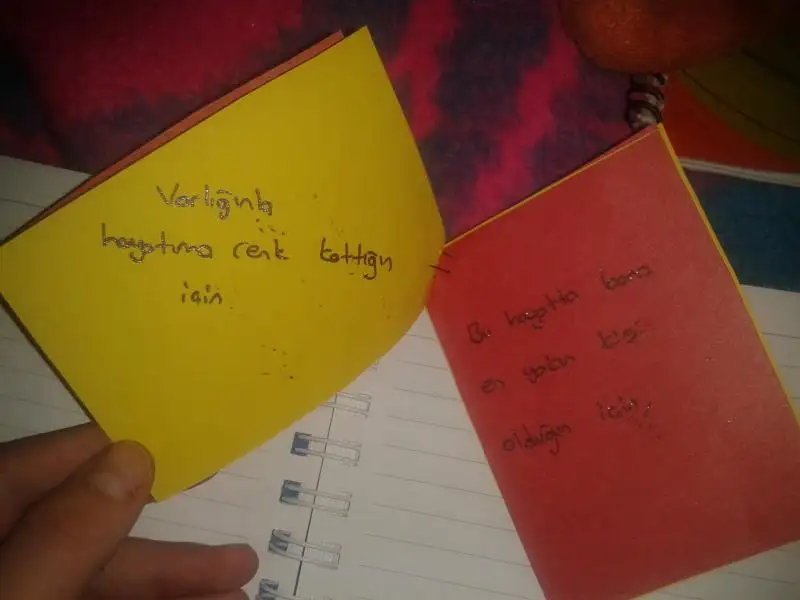 Varlığınla
hayatıma renk kattığın
için
Bu hayatta bana
en yakın kişi
olduğun için,